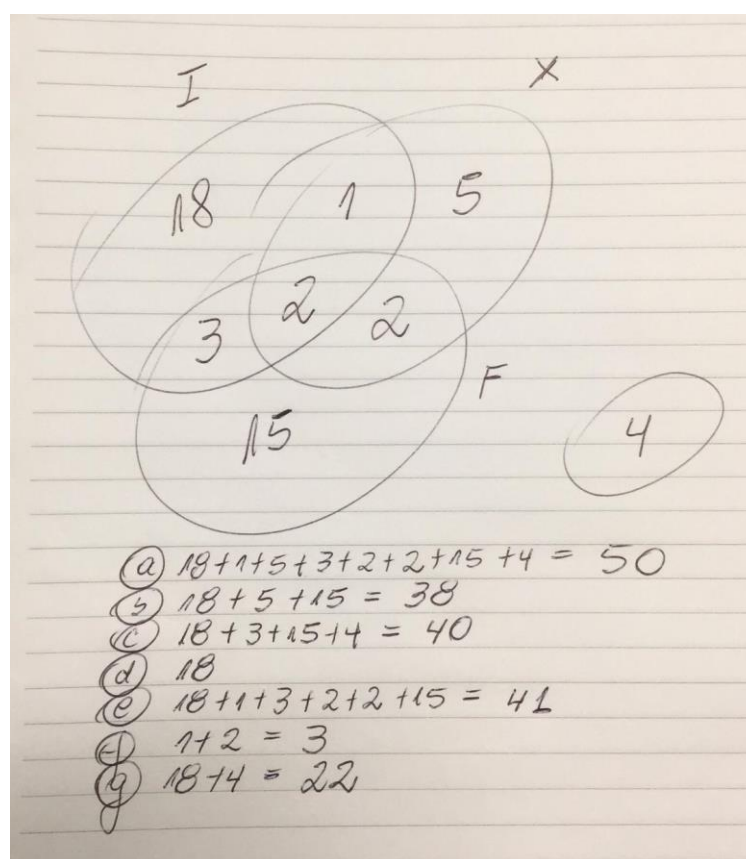 I
X
18 1 5
3 2 2
F
15
4
a 18+1+5+3+2+2+15+4 = 50
b 18+5+15 = 38
c 18+3+15+4 = 40
d 18
e 18+1+3+2+2+15 = 41
f 1+2 = 3
g 18+4 = 22